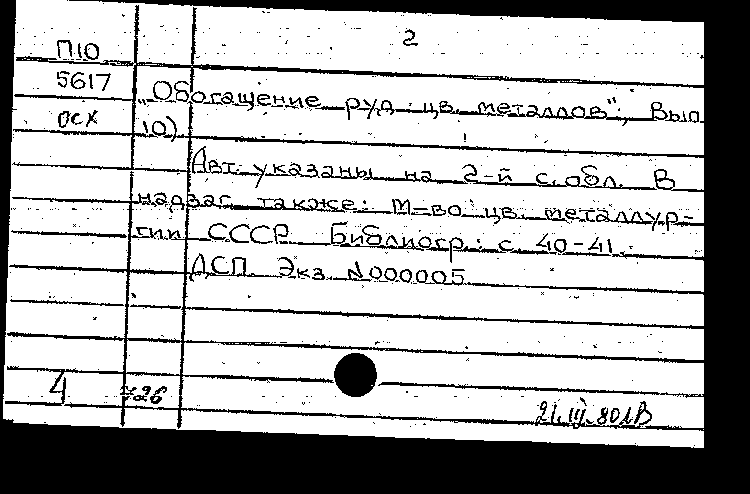 2
П10
5617
осх
„Обогащение руд цв. металлов", Вып
10)
Авт. указаны на 2-й с. обл. В
надзаг. также: М-во цв. металлур-
гии СССР. Библиогр.: с. 40-41.
ДСП. Экз. №000005
4
726
21.III.80 ЛВ